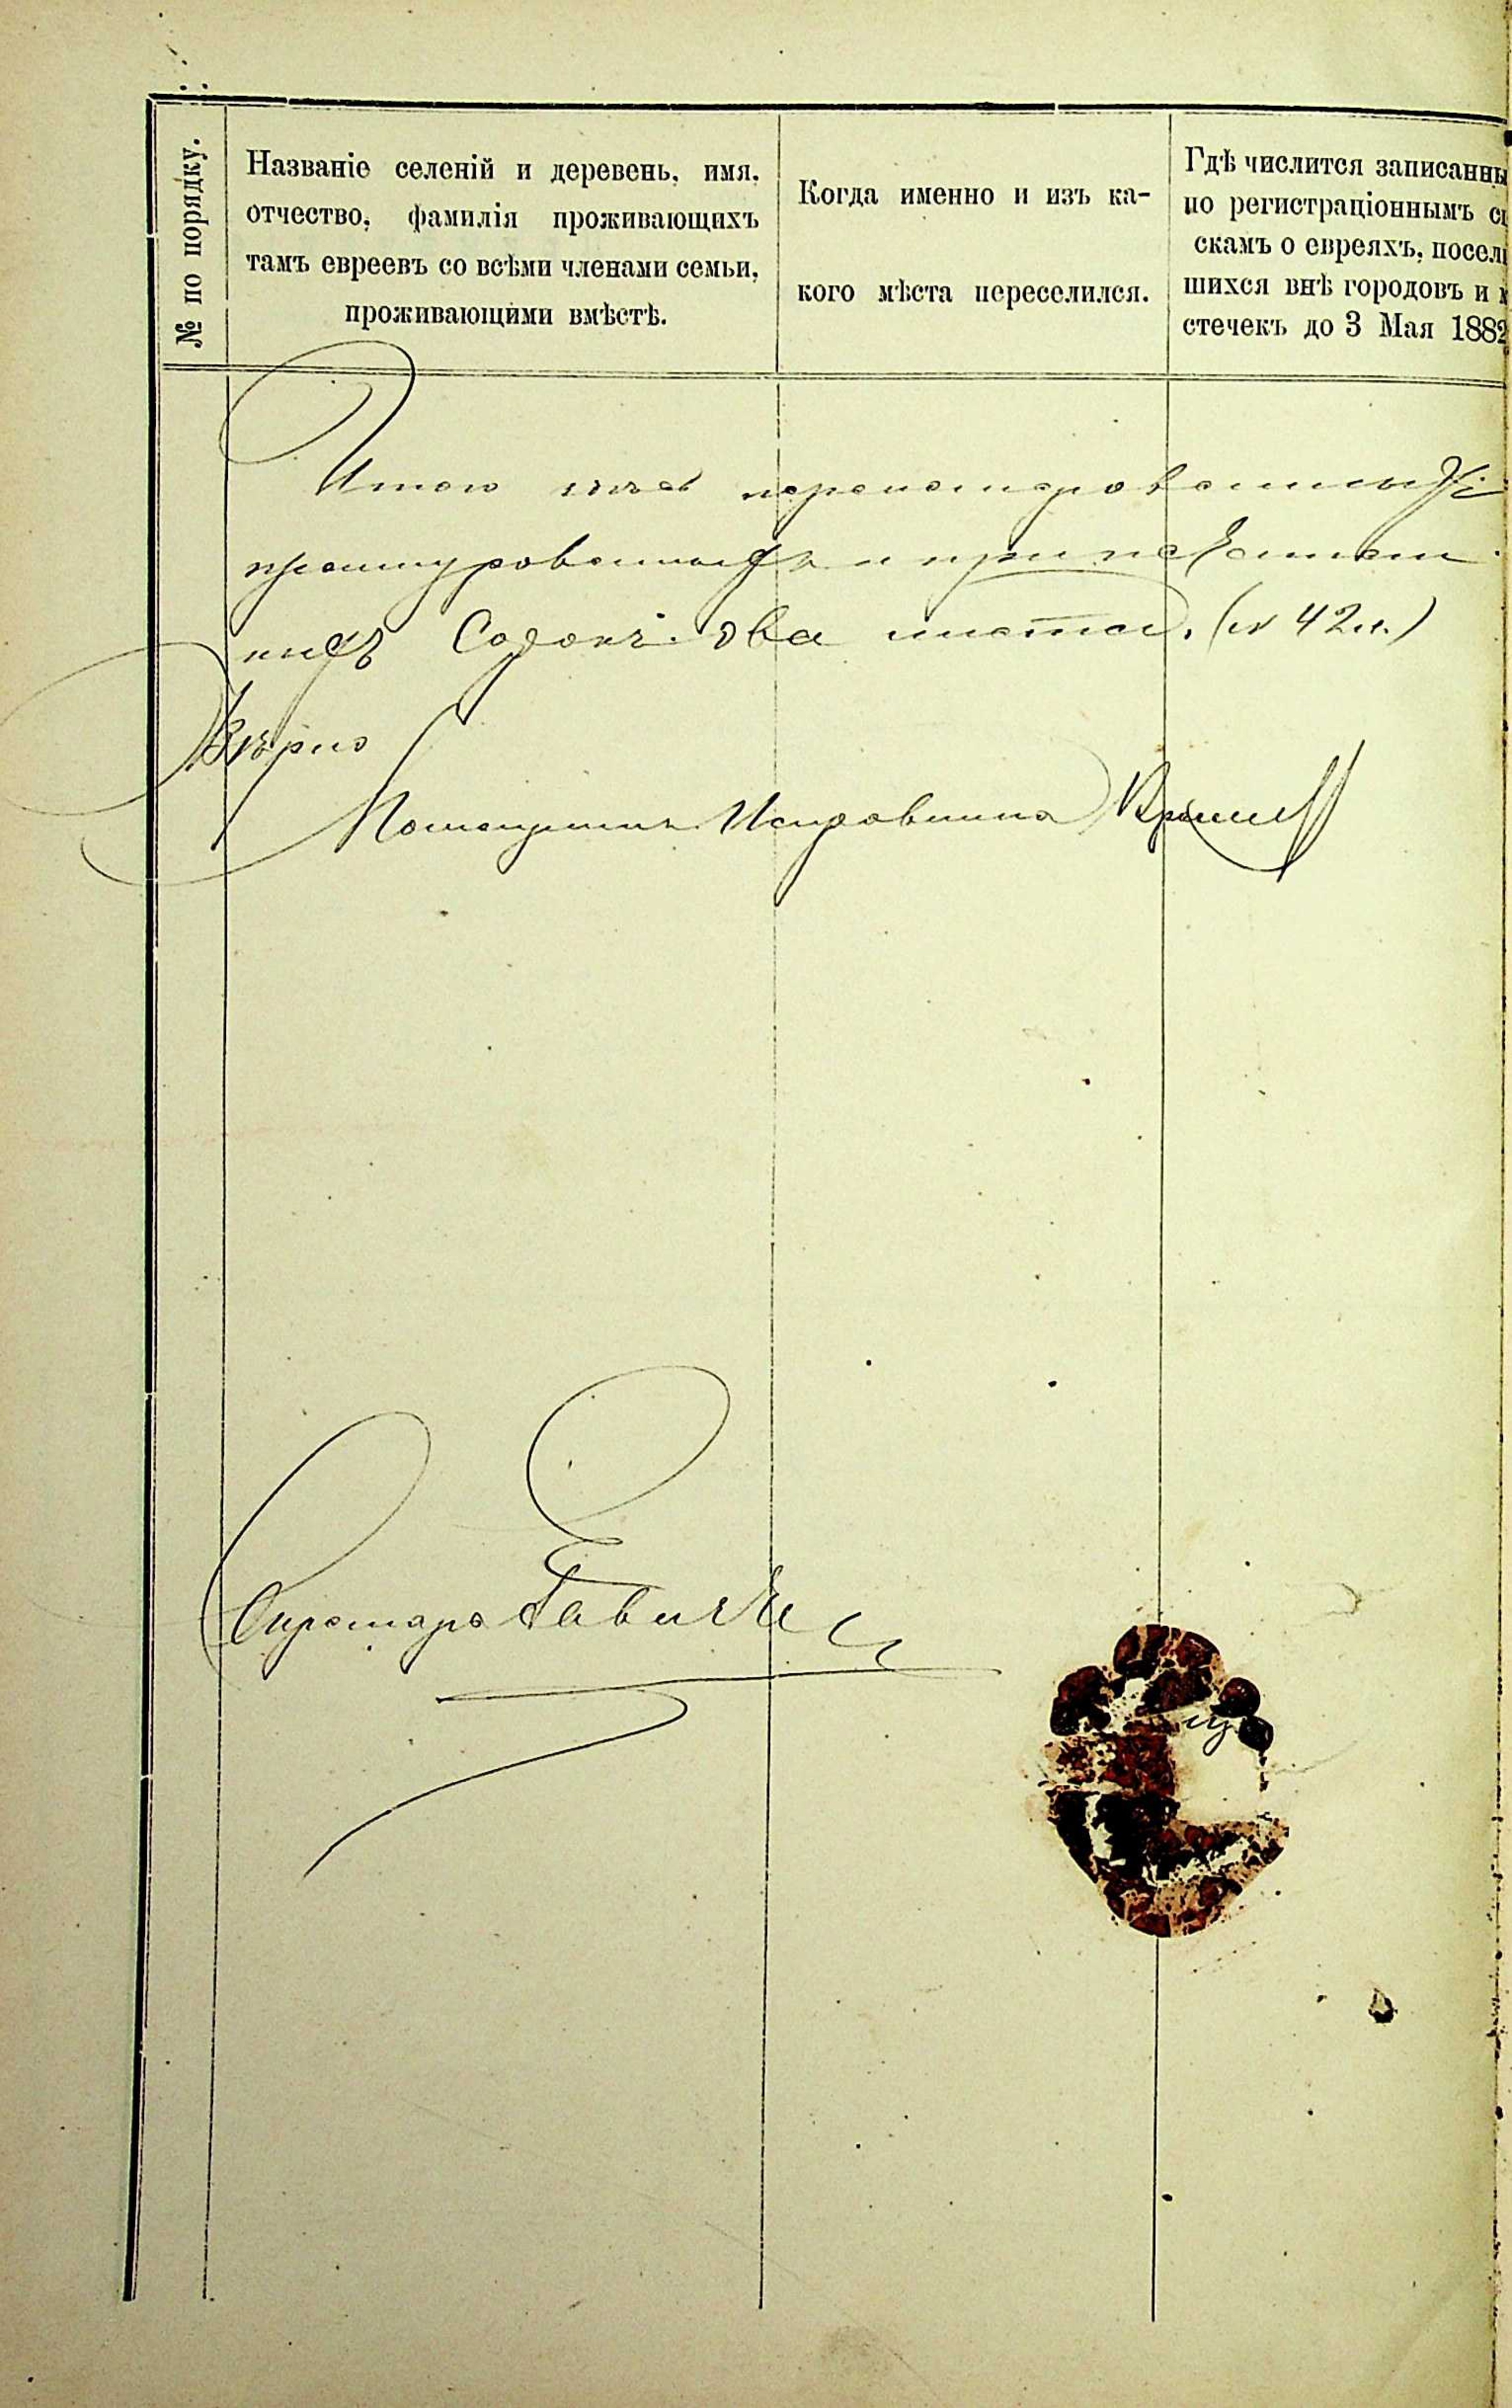 № по порядку.
Названіе селеній и деревень, имя,
отчество, фамилія проживающихъ
тамъ евреевъ со всѣми членами семьи,
проживающими вмѣстѣ.
Когда именно и изъ ка-
кого мѣста переселился.
Гдѣ числится записанны
по регистраціоннымъ сп
скамъ о евреяхъ, посели
шихся внѣ городовъ и м
стечекъ до 3 Мая 1882
Итого
прошнурованныхъ и
Сорокъ два листа. (42 л.)
Вѣрно
Помощникъ Исправника
Секретарь